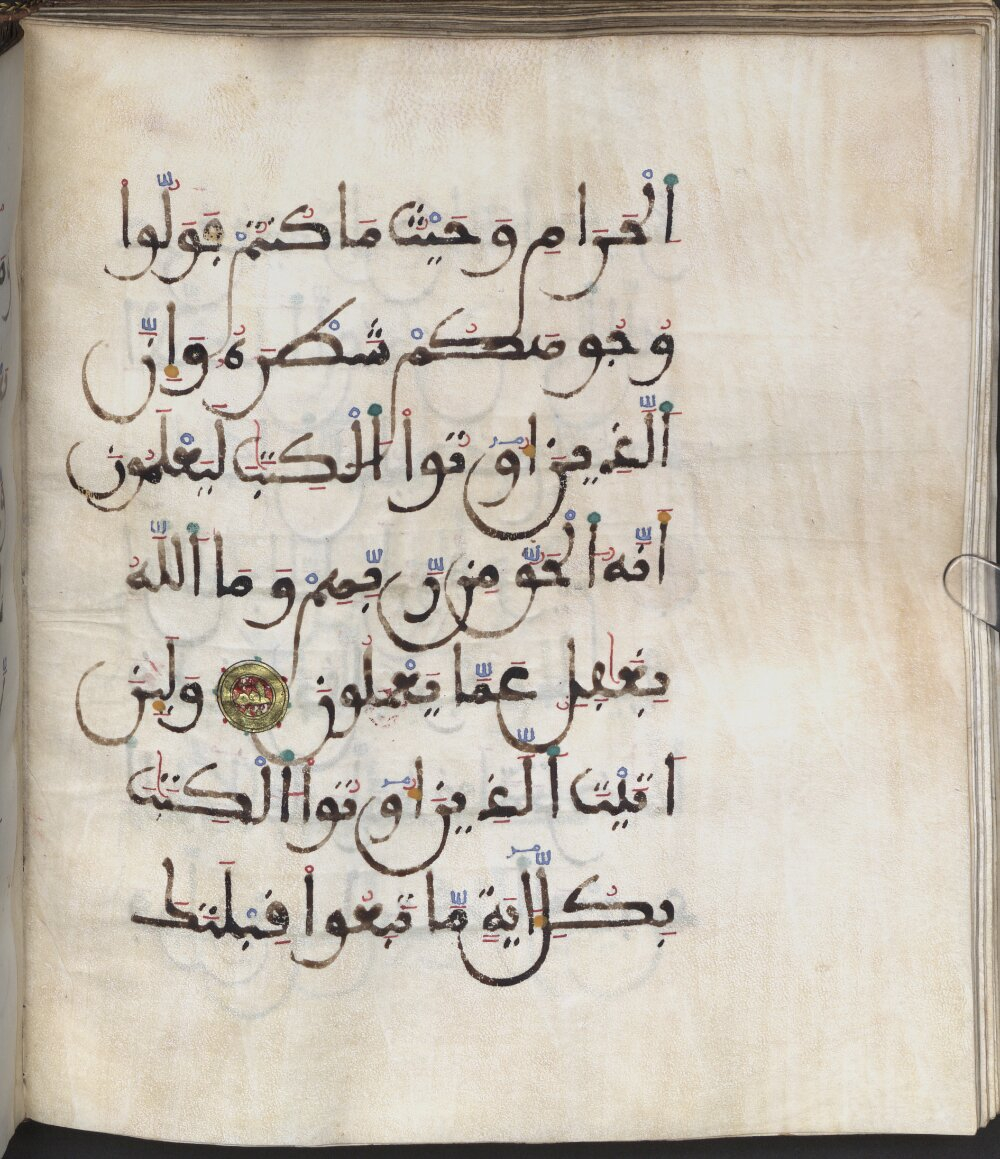 الْحَرَامِ وَحَيْثُ مَا كُنتُمْ فَوَلُّوا
وُجُوهَكُمْ شَطْرَهُ وَإِنَّ
الَّذِينَ أُوتُوا الْكِتَٰبَ لَيَعْلَمُونَ
أَنَّهُ الْحَقُّ مِن رَّبِّهِمْ وَمَا اللَّهُ
بِغَٰفِلٍ عَمَّا يَعْمَلُونَ وَلَئِنْ
أَتَيْتَ الَّذِينَ أُوتُوا الْكِتَٰبَ
بِكُلِّ ءَايَةٍ مَّا تَبِعُوا قِبْلَتَكَ